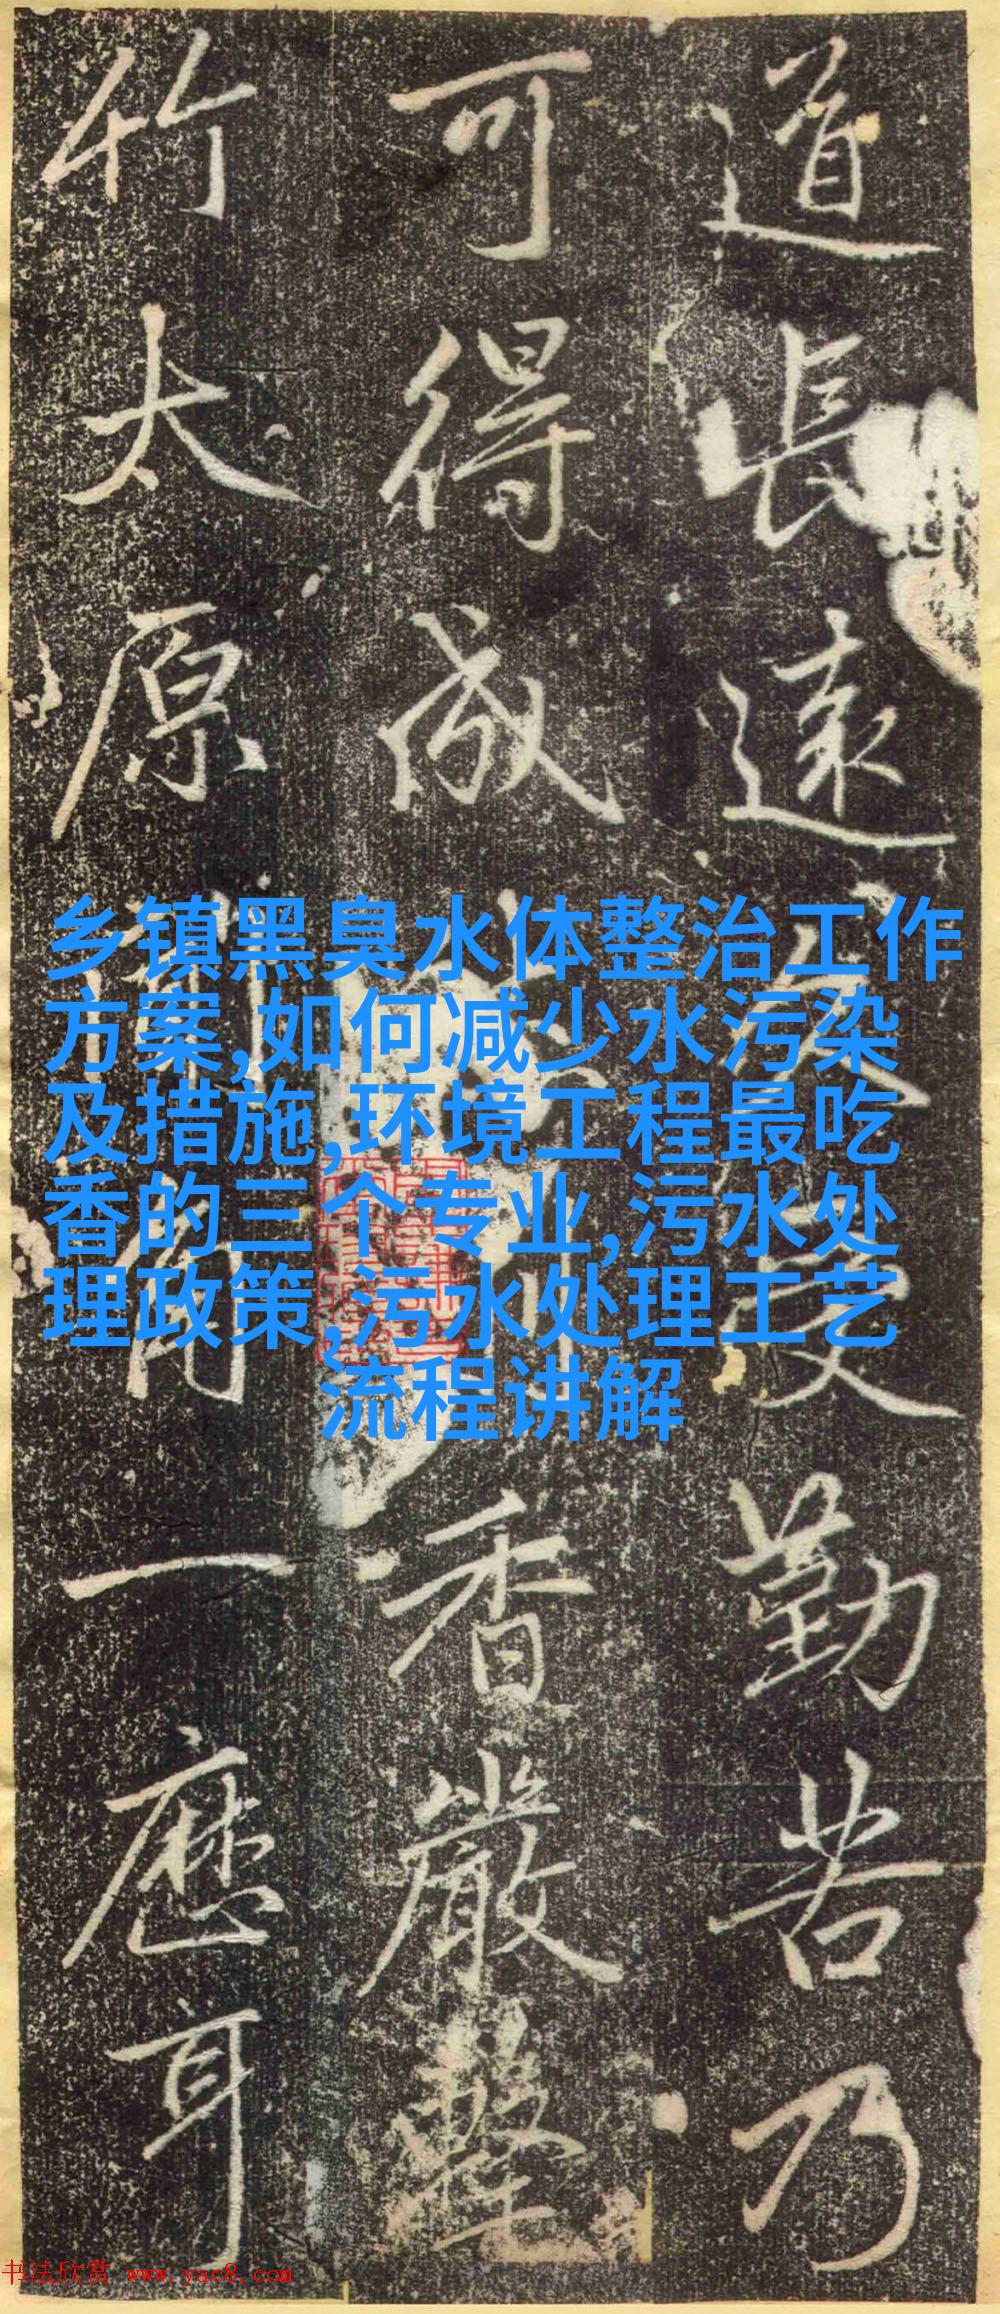 道長遠久受勤苦乃
可得成香嚴擊
竹太原一應耳
乡镇黑臭水体整治工作
方案,如何减少水污染
及措施,环境工程最吃
香的三个专业,污水处
理政策,污水处理工艺
流程讲解
书法欣赏 www.yac8.com